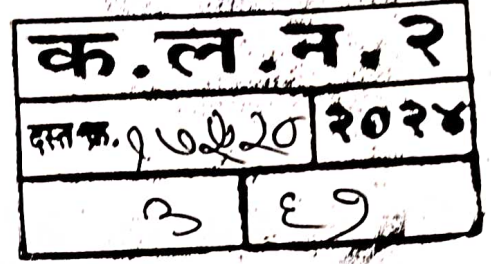 क.ल.न.२
दस्त क्र. १७५२० २०२४
३ ६१